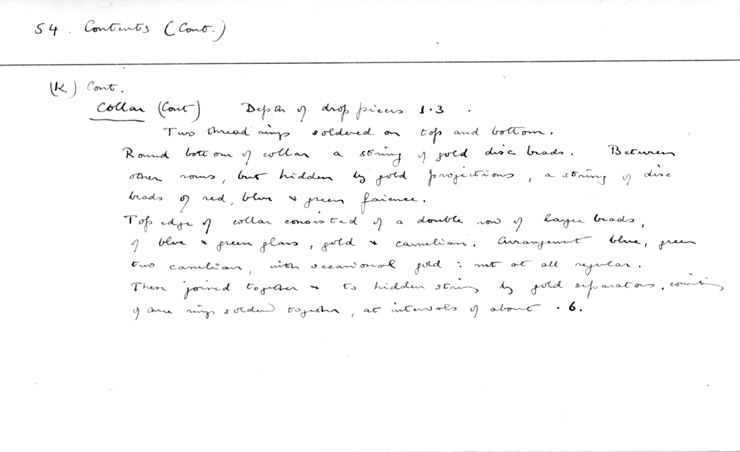 54. Contents (Cont.)
(K) Cont.
Collar (Cont) Depth of drop pieces 1.3.
Two thread rings soldered on top and bottom.
Round bottom of collar a string of gold disc beads. Between
other rows, but hidden by gold projections, a string of disc
beads of red, blue + green faience.
Top edge of collar consisted of a double row of larger beads,
of blue + green glass, gold + carnelian. Arrangement blue, green
two carnelian, with occasional gold: not at all regular.
These joined together + to hidden string by gold separators,
of rings soldered together, at intervals of about .6.